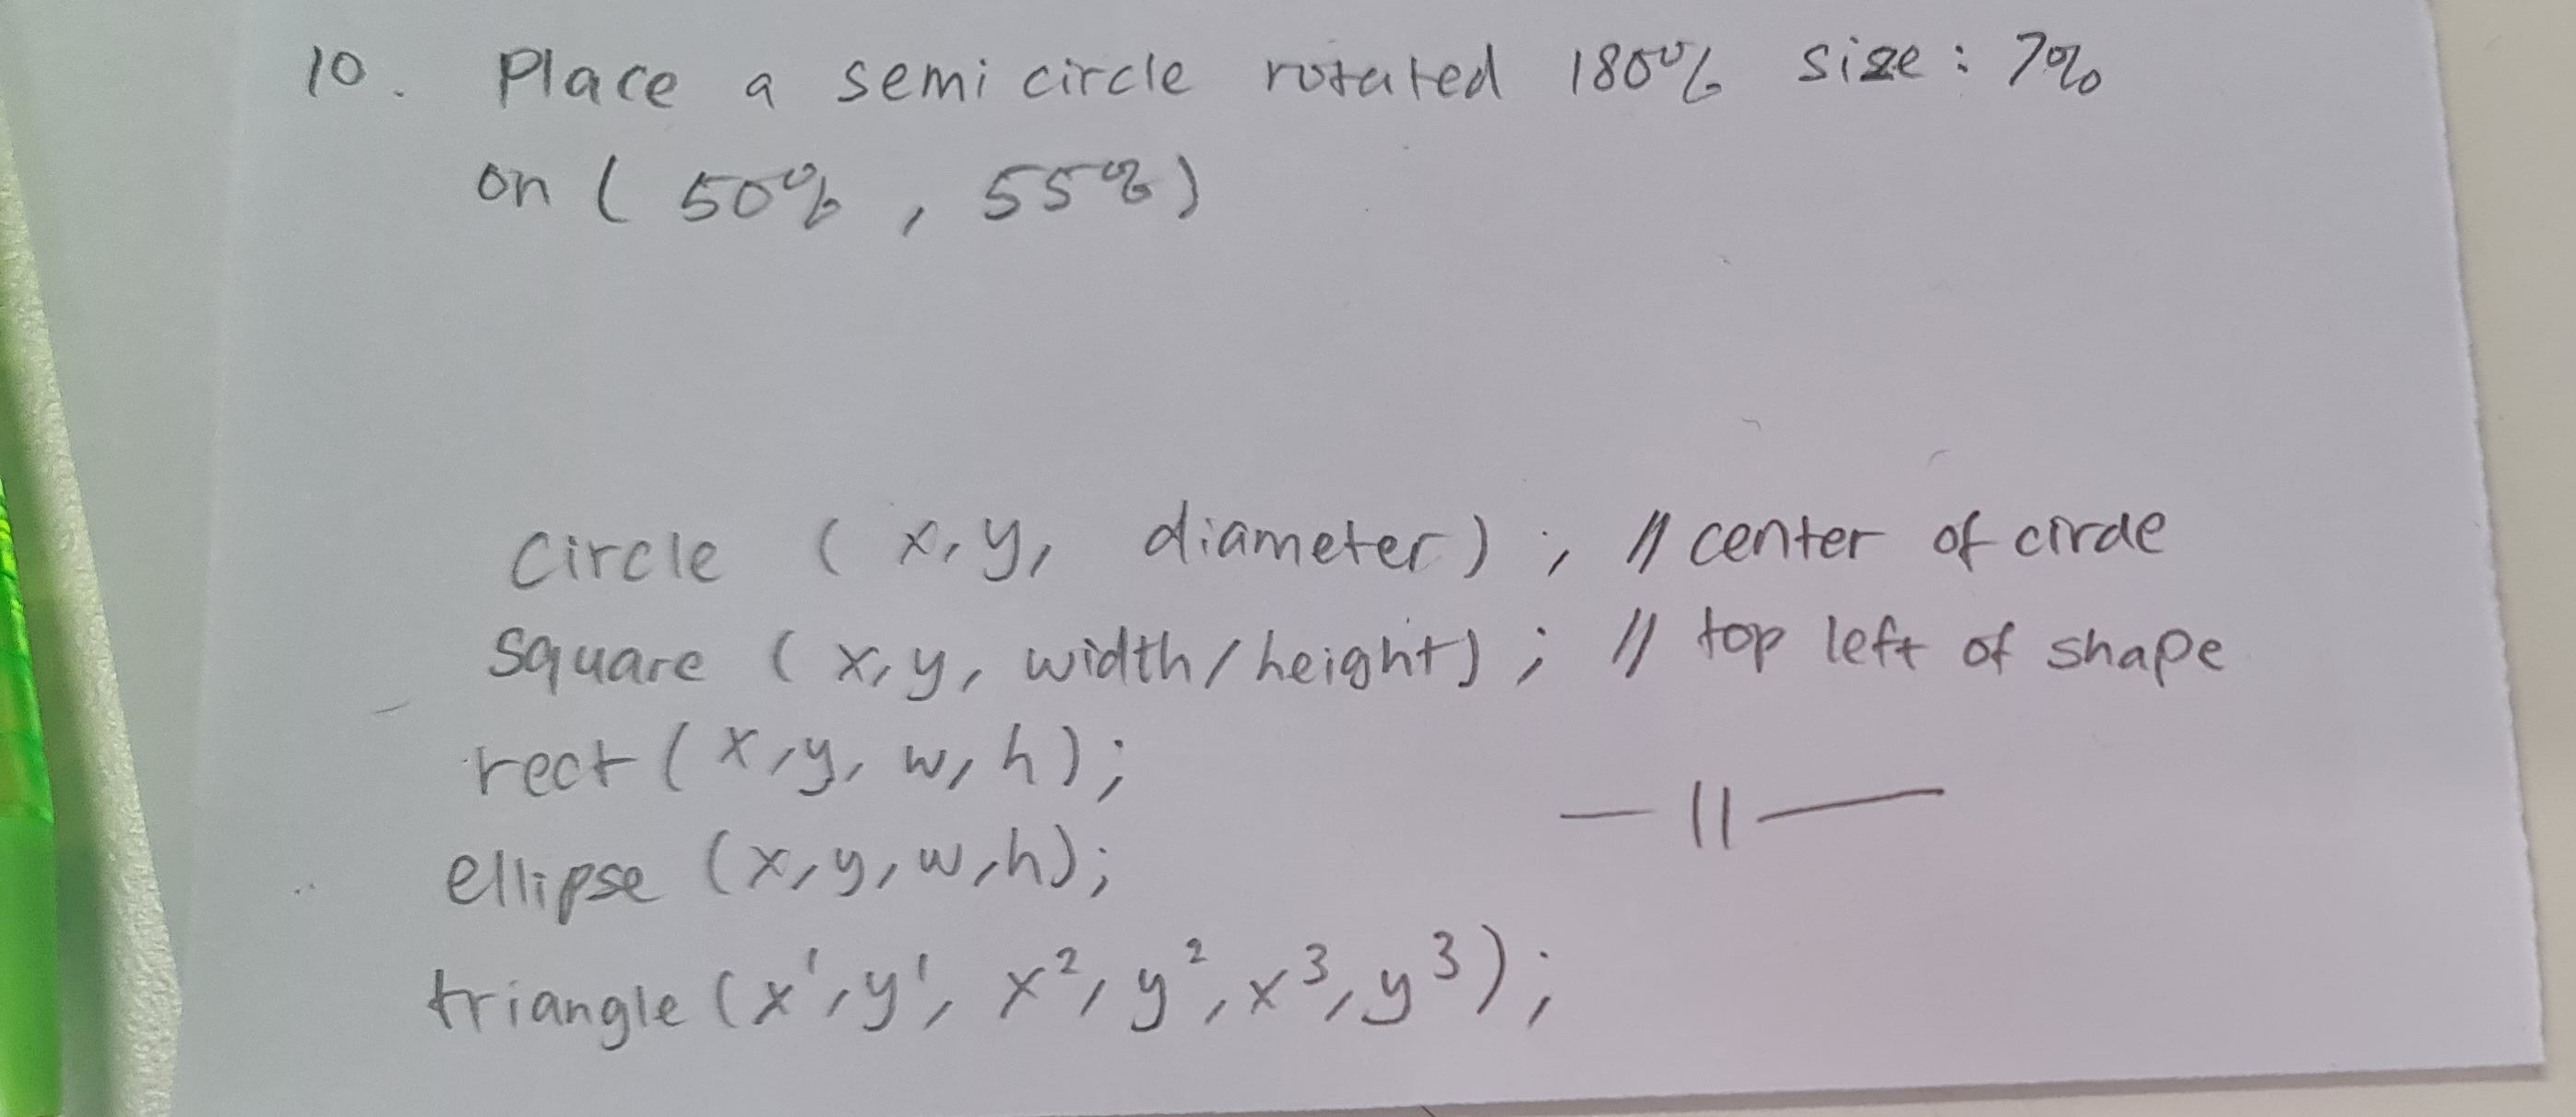 10. Place a semi circle rotated 180% size: 7%
on ( 50%, 55%)
Circle ( x, y, diameter) ; // center of circle
Square ( x, y, width/height) ; // top left of shape
rect ( x, y, w, h ) ; — || —
ellipse (x, y, w, h);
triangle (x¹, y¹, x², y², x³, y³);